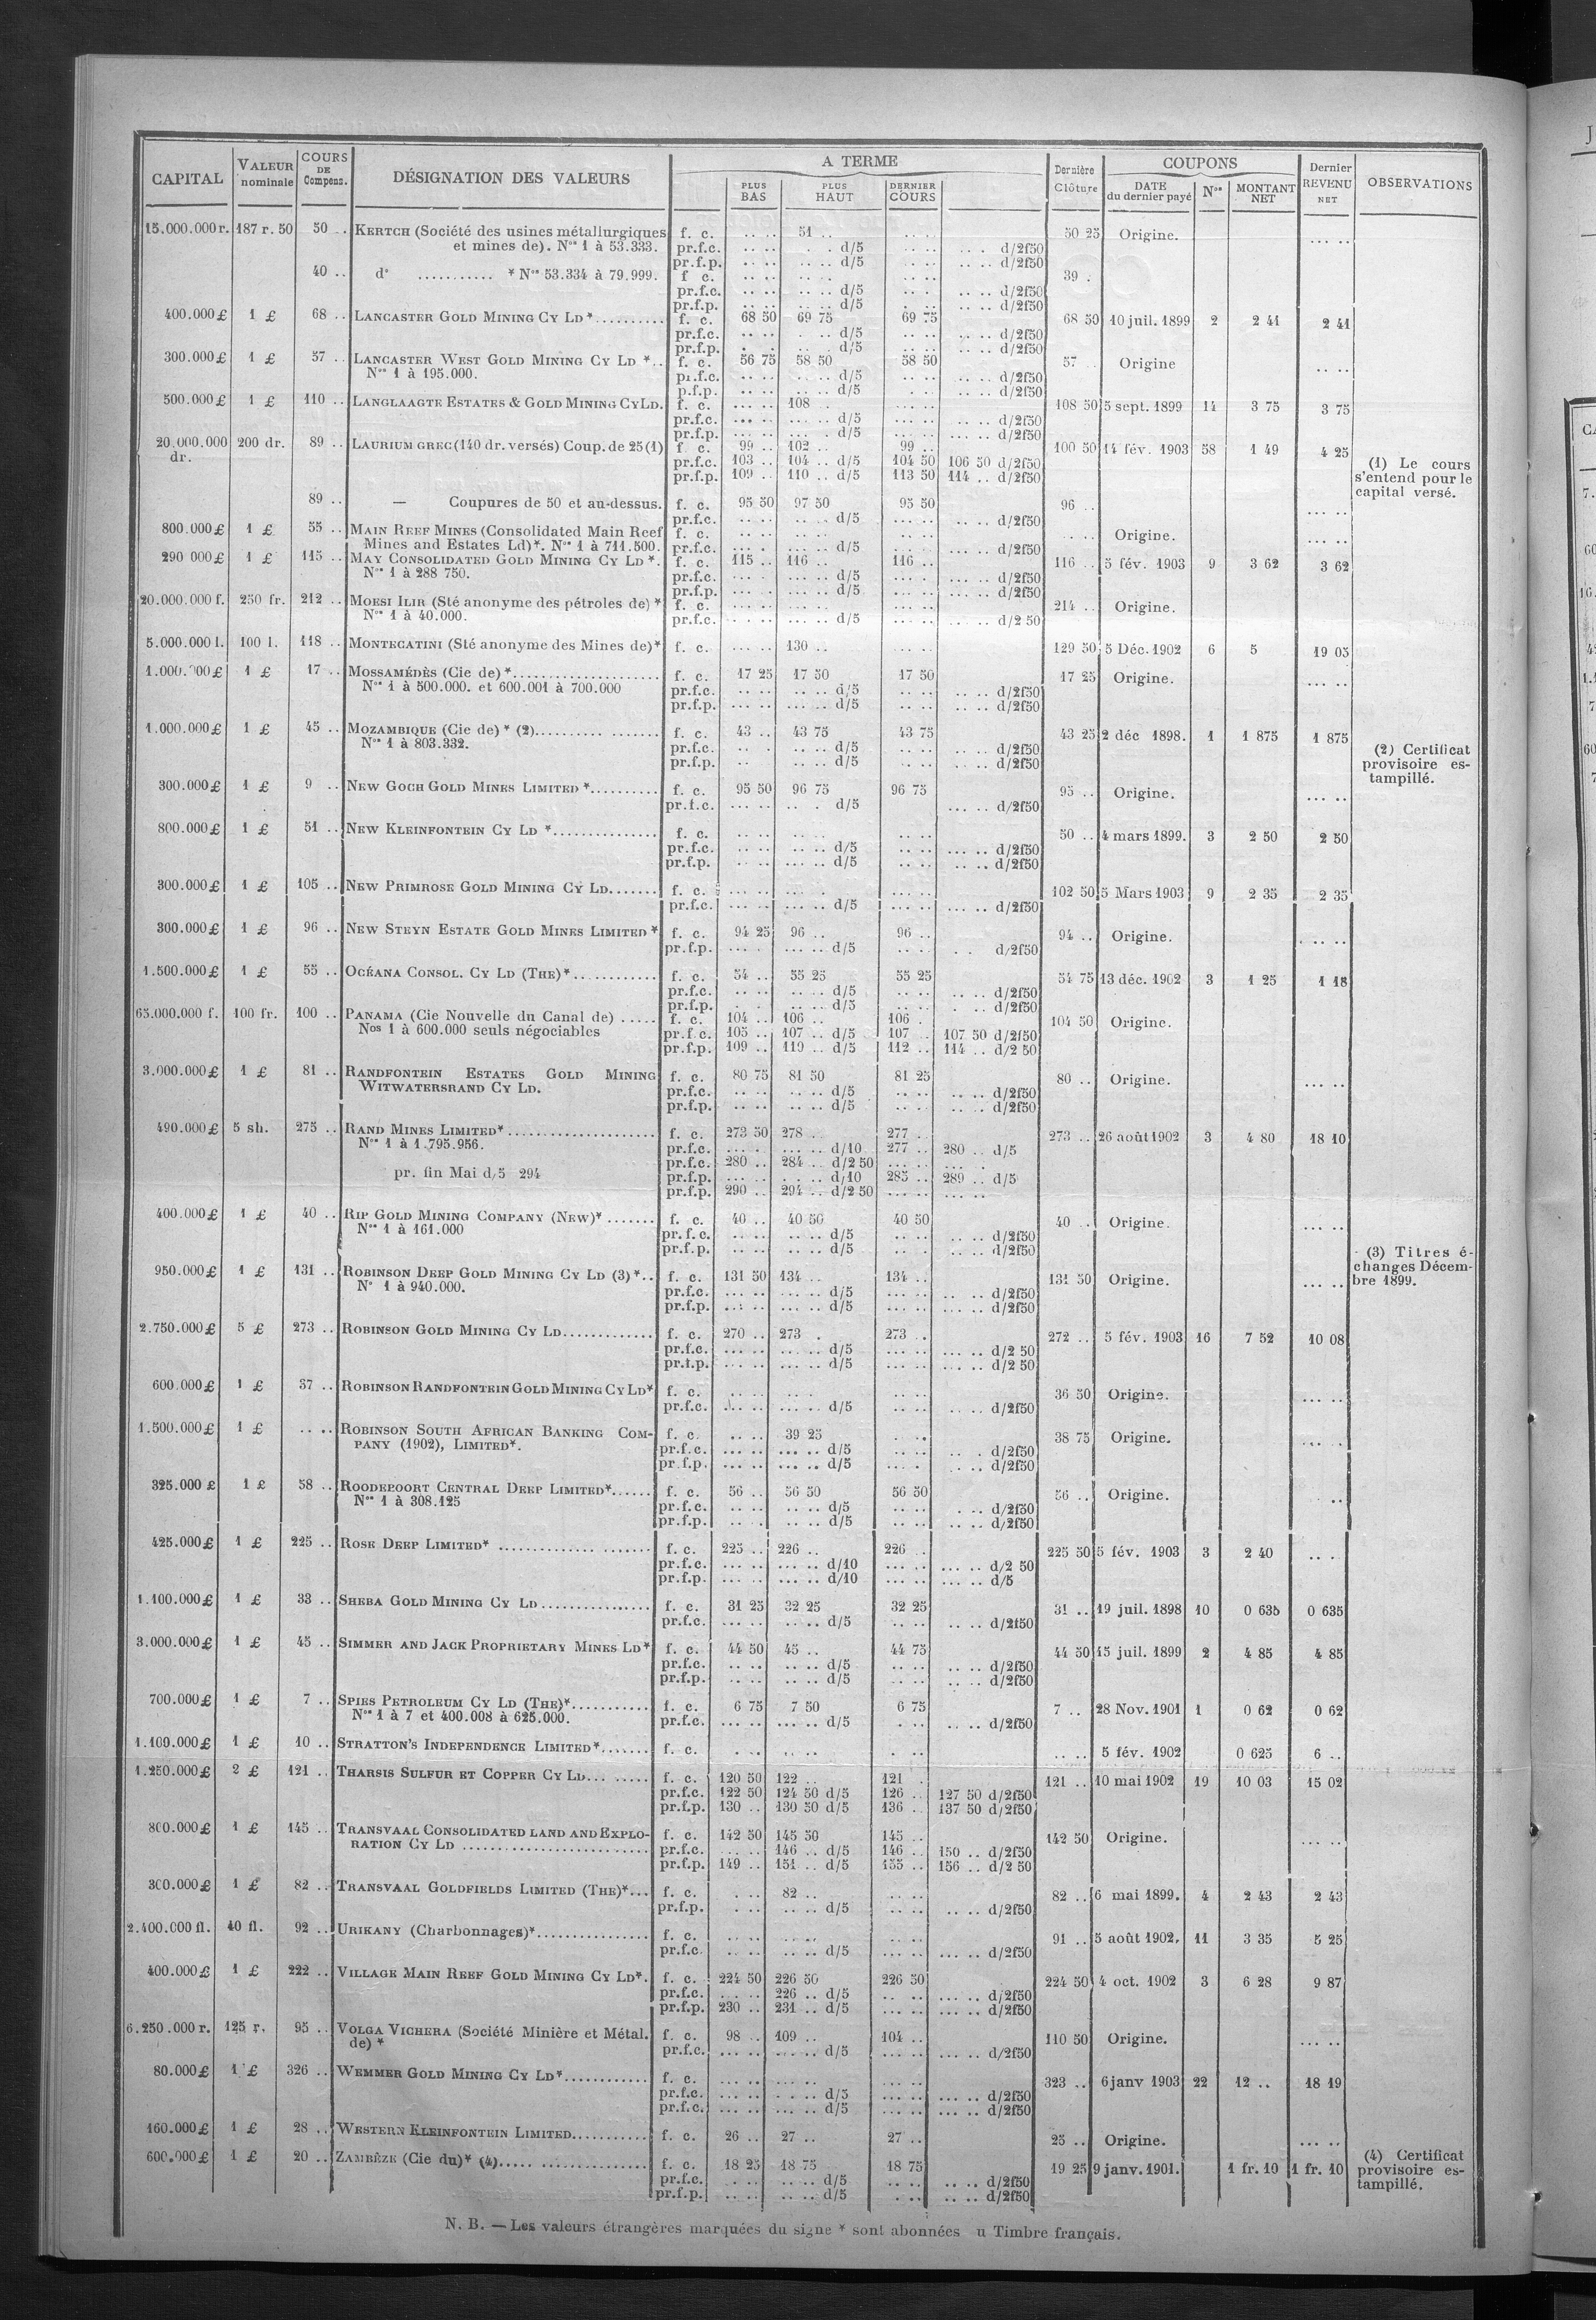 CAPITAL VALEUR nominale COURS DE Compens. DÉSIGNATION DES VALEURS A TERME PLUS BAS PLUS HAUT DERNIER COURS Dernière Clôture COUPONS DATE du dernier payé Nos MONTANT NET Dernier REVENU NET OBSERVATIONS
15.000.000 r. 187 r. 50 50 .. KERTCH (Société des usines métallurgiques f. c. .. .. 51 .. .. .. 50 25 Origine. ... ..
et mines de). Nos 1 à 53.333. pr.f.c. .. .. . . d/5 .. .. .. . d/2f50
pr.f.p. .. .. .. .. d/5 .. .. .. .. d/2f50
40 .. do ........... * Nos 53.334 à 79.999. f c. .. .. .. .. .. .. 39 .
pr.f.c. .. .. .. .. d/5 .. . .. .. d/2f50
pr.f.p. .. .. .. .. d/5 . .. .. .. d/2f50
400.000 £ 1 £ 68 .. LANCASTER GOLD MINING CY LD *.......... f. c. 68 50 69 75 69 75 68 50 10 juil. 1899 2 2 41 2 41
pr.f.c. .. .. .. d/5 .. .. .. .. d/2f50
pr.f.p. . . .. d/5 .. .. .. .. d/2f50
300.000 £ 1 £ 57 .. LANCASTER WEST GOLD MINING CY LD *.. f. c. 56 75 58 50 58 50 57 .. Origine .. ..
Nos 1 à 195.000. pr.f.c. .. .. . .. d/5 .. .. .. .. d/2f50
p.f.p. .. .. .. .. d/5 . .. .. .. d/2f50
500.000 £ 1 £ 110 .. LANGLAAGTE ESTATES & GOLD MINING CY LD. f. c. ... .. 108 .. ... .. 108 50 5 sept. 1899 14 3 75 3 75
pr.f.c. ... .. ... .. d/5 ... .. ... .. d/2f50
pr.f.p. ... .. ... .. d/5 ... .. ... .. d/2f50
20.000.000 200 dr. 89 .. LAURIUM GREC (140 dr. versés) Coup. de 25 (1) f c. 99 .. 102 .. 99 .. 100 50 14 fév. 1903 58 1 49 4 25
dr. pr.f.c. 103 .. 104 .. d/5 104 50 106 50 d/2f50 (1) Le cours
pr.f.p. 109 .. 110 .. d/5 113 50 114 .. d/2f50 s'entend pour le
89 .. — Coupures de 50 et au-dessus. f. c. 95 50 97 50 95 50 96 .. ... .. capital versé.
pr.f.c. .. .. .. . d/5 ... .. .. .. d/2f50
800.000 £ 1 £ 55 .. MAIN REEF MINES (Consolidated Main Reef f. c. .. .. .. .. .. .. . .. Origine. ... ..
Mines and Estates Ld)*. Nos 1 à 711.500. pr.f.c. ... . ... .. d/5 ... . ... .. d/2f50
290 000 £ 1 £ 115 .. MAY CONSOLIDATED GOLD MINING CY LD *. f. c. 115 .. 116 .. 116 .. 116 .. 5 fév. 1903 9 3 62 3 62
Nos 1 à 288 750. pr.f.c. ... . ... .. d/5 ... . ... .. d/2f50
pr.f.p. ... .. ... .. d/5 ... .. ... .. d/2f50
20.000.000 f. 250 fr. 212 .. MOESI ILIR (Sté anonyme des pétroles de) * f. c. ... .. ... .. ... .. 214 .. Origine.
Nos 1 à 40.000. pr.f.c. .. .. ... .. d/5 ... .. ... .. d/2 50
5.000.000 l. 100 l. 118 .. MONTECATINI (Sté anonyme des Mines de)* f. c. ... .. 130 .. ... .. 129 50 5 Déc. 1902 6 5 19 05
1.000.000 £ 1 £ 17 .. MOSSAMÉDÈS (Cie de) *..................... f. c. 17 25 17 50 17 50 17 25 Origine. ... ..
Nos 1 à 500.000. et 600.001 à 700.000 pr.f.c. .. .. .. .. d/5 .. .. .. .. d/2f50
pr.f.p. ... .. .. .. d/5 .. .. .. .. d/2f50
1.000.000 £ 1 £ 45 .. MOZAMBIQUE (Cie de) * (2).......... ....... f. c. 43 .. 43 75 43 75 43 25 2 déc 1898. 1 1 875 1 875
Nos 1 à 803.332. pr.f.c. .. . .. .. d/5 .. .. .. .. d/2f50 (2) Certificat
pr.f.p. .. .. .. d/5 .. .. .. .. d/2f50 provisoire es-
300.000 £ 1 £ 9 .. NEW GOCH GOLD MINES LIMITED *.......... f. c. 95 50 96 75 96 75 95 .. Origine. ... .. tampillé.
pr.f.c. ... .. .. . d/5 ... .. d/2f50
800.000 £ 1 £ 51 .. NEW KLEINFONTEIN CY LD *............... f. c. .. .. .. .. .. .. 50 .. 4 mars 1899. 3 2 50 2 50
pr.f.c. .. .. ... .. d/5 .. .. ... .. d/2f50
pr.f.p. .. .. ... .. d/5 .. .. .. .. d/2f50
300.000 £ 1 £ 105 .. NEW PRIMROSE GOLD MINING CY LD....... f. c. ... .. ... . ... .. 102 50 5 Mars 1903 9 2 35 2 35
pr.f.c. ... .. ... .. d/5 ... .. ... .. d/2f50
300.000 £ 1 £ 96 .. NEW STEYN ESTATE GOLD MINES LIMITED * f. c. 94 25 96 .. 96 .. 94 .. Origine. ... ..
pr.f.p. ... . ... .. d/5 .. . . . d/2f50
1.500.000 £ 1 £ 55 .. OCÉANA CONSOL. CY LD (THE)*............ f. c. 54 .. 55 25 55 25 54 75 13 déc. 1902 3 1 25 1 18
pr.f.c. .. .. .. .. d/5 .. .. .. .. d/2f50
pr.f.p. . . .. .. d/5 .. .. . .. d/2f50
65.000.000 f. 100 fr. 100 .. PANAMA (Cie Nouvelle du Canal de) ..... f. c. 104 .. 106 .. 106 . 104 50 Origine.
Nos 1 à 600.000 seuls négociables pr.f.c. 105 .. 107 .. d/5 107 .. 107 50 d/2f50
pr.f.p. 109 .. 110 .. d/5 112 .. 114 .. d/2 50
3.000.000 £ 1 £ 81 .. RANDFONTEIN ESTATES GOLD MINING f. c. 80 75 81 50 81 25 80 .. Origine. ... ..
WITWATERSRAND CY LD. pr.f.c. .. .. .. .. d/5 .. .. .. .. d/2f50
pr.f.p. .. .. .. .. d/5 .. .. .. .. d/2f50
490.000 £ 5 sh. 275 .. RAND MINES LIMITED*..................... f. c. 273 50 278 .. 277 .. 273 .. 26 août 1902 3 4 80 18 10
Nos 1 à 1.795.956. pr.f.c. ... .. ... .. d/10 277 .. 280 .. d/5
pr.f.c. 280 .. 284 .. d/2 50 ... .. ... .
pr. fin Mai d/5 294 pr.f.p. ... .. ... . d/10 285 .. 289 .. d/5
pr.f.p. 290 .. 294 .. d/2 50 ... .. ... ..
400.000 £ 1 £ 40 .. RIP GOLD MINING COMPANY (NEW)* ....... f. c. 40 .. 40 50 40 50 40 .. Origine. ... ..
Nos 1 à 161.000 pr.f.c. .. .. .. .. d/5 .. .. .. .. d/2f50
pr.f.p. .. .. .. .. d/5 .. . .. .. d/2f50 (3) Titres é-
950.000 £ 1 £ 131 .. ROBINSON DEEP GOLD MINING CY LD (3)*.. f. c. 131 50 134 .. 134 .. 131 50 Origine. ... .. changes Décem-
No 1 à 940.000. pr.f.c. ... .. ... .. d/5 ... .. .. .. d/2f50 bre 1899.
pr.f.p. ... .. ... .. d/5 ... .. ... .. d/2f50
2.750.000 £ 5 £ 273 .. ROBINSON GOLD MINING CY LD............. f. c. 270 .. 273 . 273 .. 272 .. 5 fév. 1903 16 7 52 10 08
pr.f.c. ... .. ... .. d/5 ... .. ... .. d/2 50
pr.f.p. ... .. ... .. d/5 ... .. ... .. d/2 50
600.000 £ 1 £ 37 .. ROBINSON RANDFONTEIN GOLD MINING CY LD* f. c. .. .. .. . .. .. 36 50 Origine. ... ..
pr.f.c. ... .. ... .. d/5 .. .. ... .. d/2f50
1.500.000 £ 1 £ .. .. ROBINSON SOUTH AFRICAN BANKING COM- f. c. .. .. 39 25 .. . 38 75 Origine. ... .
PANY (1902), LIMITED*. pr.f.c. ... .. ... .. d/5 .. .. .. . d/2f50
pr f.p. ... .. ... .. d/5 ... . . .. d/2f50
325.000 £ 1 £ 58 .. ROODEPOORT CENTRAL DEEP LIMITED*...... f. c. 56 .. 56 50 56 50 56 .. Origine. ..
Nos 1 à 308.125 pr.f.c. .. .. .. .. d/5 .. .. . .. d/2f50
pr.f.p. .. . .. .. d/5 .. .. .. .. d/2f50
425.000 £ 1 £ 225 .. ROSE DEEP LIMITED* ............. ....... f. c. 225 .. 226 .. 226 .. 225 50 5 fév. 1903 3 2 40 ... .
pr.f.c. ... .. ... .. d/10 ... .. ... .. d/2 50
pr.f.p. ... .. ... .. d/10 ... .. ... .. d/5
1.100.000 £ 1 £ 33 .. SHEBA GOLD MINING CY LD ................ f. c. 31 25 32 25 32 25 31 .. 19 juil. 1898 10 0 635 0 635
pr.f.c. ... .. .. .. d/5 .. .. .. .. d/2f50
3.000.000 £ 1 £ 45 .. SIMMER AND JACK PROPRIETARY MINES LD* f. c. 44 50 45 .. 44 75 44 50 15 juil. 1899 2 4 85 4 85
pr.f.c. .. .. .. .. d/5 .. .. .. .. d/2f50
pr.f.p. .. .. .. .. d/5 .. .. .. .. d/2f50
700.000 £ 1 £ 7 .. SPIES PETROLEUM CY LD (THE)*........... f. c. 6 75 7 50 6 75 7 .. 28 Nov. 1901 1 0 62 0 62
Nos 1 à 7 et 400.008 à 625.000. pr.f.c. ... .. ... .. d/5 . .. .. .. d/2f50
1.100.000 £ 1 £ 10 .. STRATTON'S INDEPENDENCE LIMITED*....... f. c. . .. .. .. . .. .. .. 5 fév. 1902 0 625 6 ..
1.250.000 £ 2 £ 121 .. THARSIS SULFUR ET COPPER CY LD... ..... f. c. 120 50 122 .. 121 . 121 .. 10 mai 1902 19 10 03 15 02
pr.f.c. 122 50 124 50 d/5 126 .. 127 50 d/2f50
pr.f.p. 130 .. 130 50 d/5 136 .. 137 50 d/2f50
800.000 £ 1 £ 145 .. TRANSVAAL CONSOLIDATED LAND AND EXPLO- f. c. 142 50 145 50 145 .. 142 50 Origine. ... ..
RATION CY LD ........................... pr.f.c. ... .. 146 .. d/5 146 .. 150 .. d/2f50
pr.f.p. 149 .. 151 .. d/5 155 .. 156 .. d/2 50
300.000 £ 1 £ 82 .. TRANSVAAL GOLDFIELDS LIMITED (THE)*... f. c. . .. 82 .. .. .. 82 .. 6 mai 1899. 4 2 43 2 43
pr.f.p. . .. .. .. d/5 .. .. .. .. d/2f50
2.400.000 fl. 40 fl. 92 .. URIKANY (Charbonnages)*................ f. c. .. .. .. .. .. .. 91 .. 5 août 1902. 11 3 35 5 25
pr.f.c. .. .. .. .. d/5 ... .. ... .. d/2f50
400.000 £ 1 £ 222 .. VILLAGE MAIN REEF GOLD MINING CY LD*. f. c. 224 50 226 50 226 50 224 50 4 oct. 1902 3 6 28 9 87
pr.f.c. ... .. 226 .. d/5 .. .. ... .. d/2f50
pr.f.p. 230 .. 231 .. d/5 ... .. ... .. d/2f50
6.250.000 r. 125 r. 95 .. VOLGA VICHERA (Société Minière et Métal. f. c. 98 .. 109 .. 104 .. 110 50 Origine. ... ..
de) * pr.f.c. ... .. ... .. d/5 ... .. ... .. d/2f50
80.000 £ 1 £ 326 .. WEMMER GOLD MINING CY LD*............ f. c. ... .. ... .. ... .. 323 .. 6 janv 1903 22 12 .. 18 19
pr.f.c. ... .. . . .. d/5 ... .. ... .. d/2f50
pr.f.c. ... .. ... .. d/5 ... .. ... .. d/2f50
160.000 £ 1 £ 28 .. WESTERN KLEINFONTEIN LIMITED........... f. c. 26 .. 27 .. 27 .. 25 .. Origine. ... ..
600.000 £ 1 £ 20 .. ZAMBÈZE (Cie du)* (4)..... ............... f. c. 18 25 18 75 18 75 19 25 9 janv. 1901. 1 fr. 10 1 fr. 10 (4) Certificat
pr.f.c. . .. .. .. d/5 .. .. .. .. d/2f50 provisoire es-
pr.f.p. .. .. .. .. d/5 . .. .. .. d/2f50 tampillé.
N. B. — Les valeurs étrangères marquées du signe * sont abonnées u Timbre français.